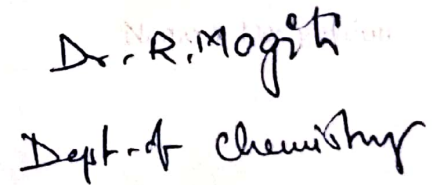 Dr. R. Mogiti
Dept. of Chemistry